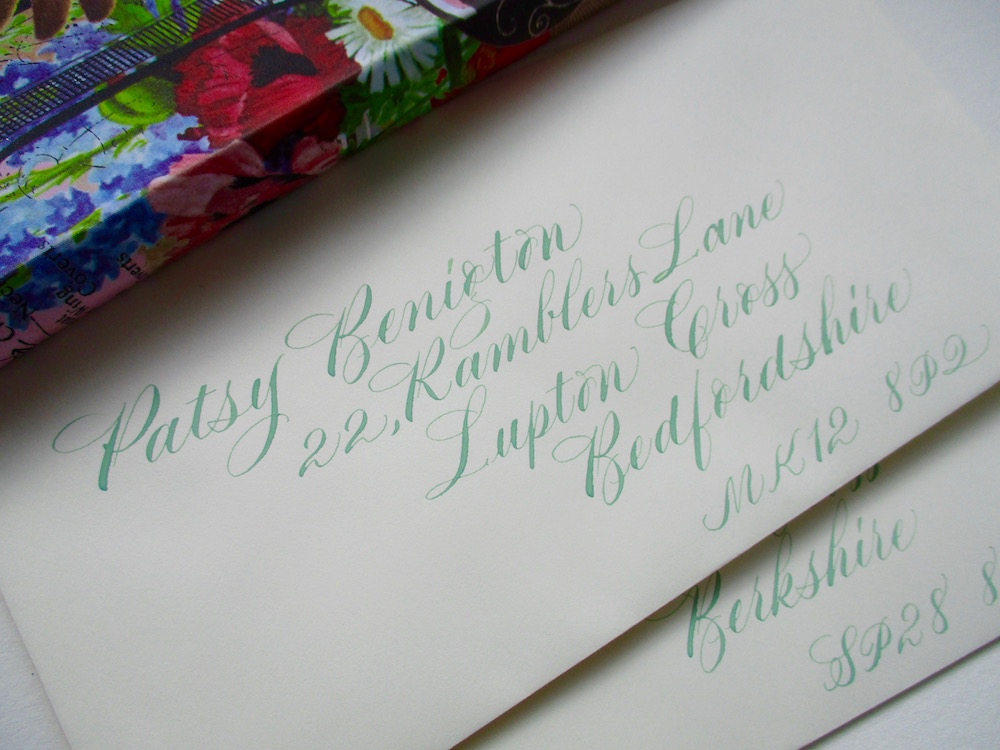 Patsy Benioton
22, Ramblers Lane
Lupton Cross
Bedfordshire
MK12 8PQ
Berkshire
SP28 8